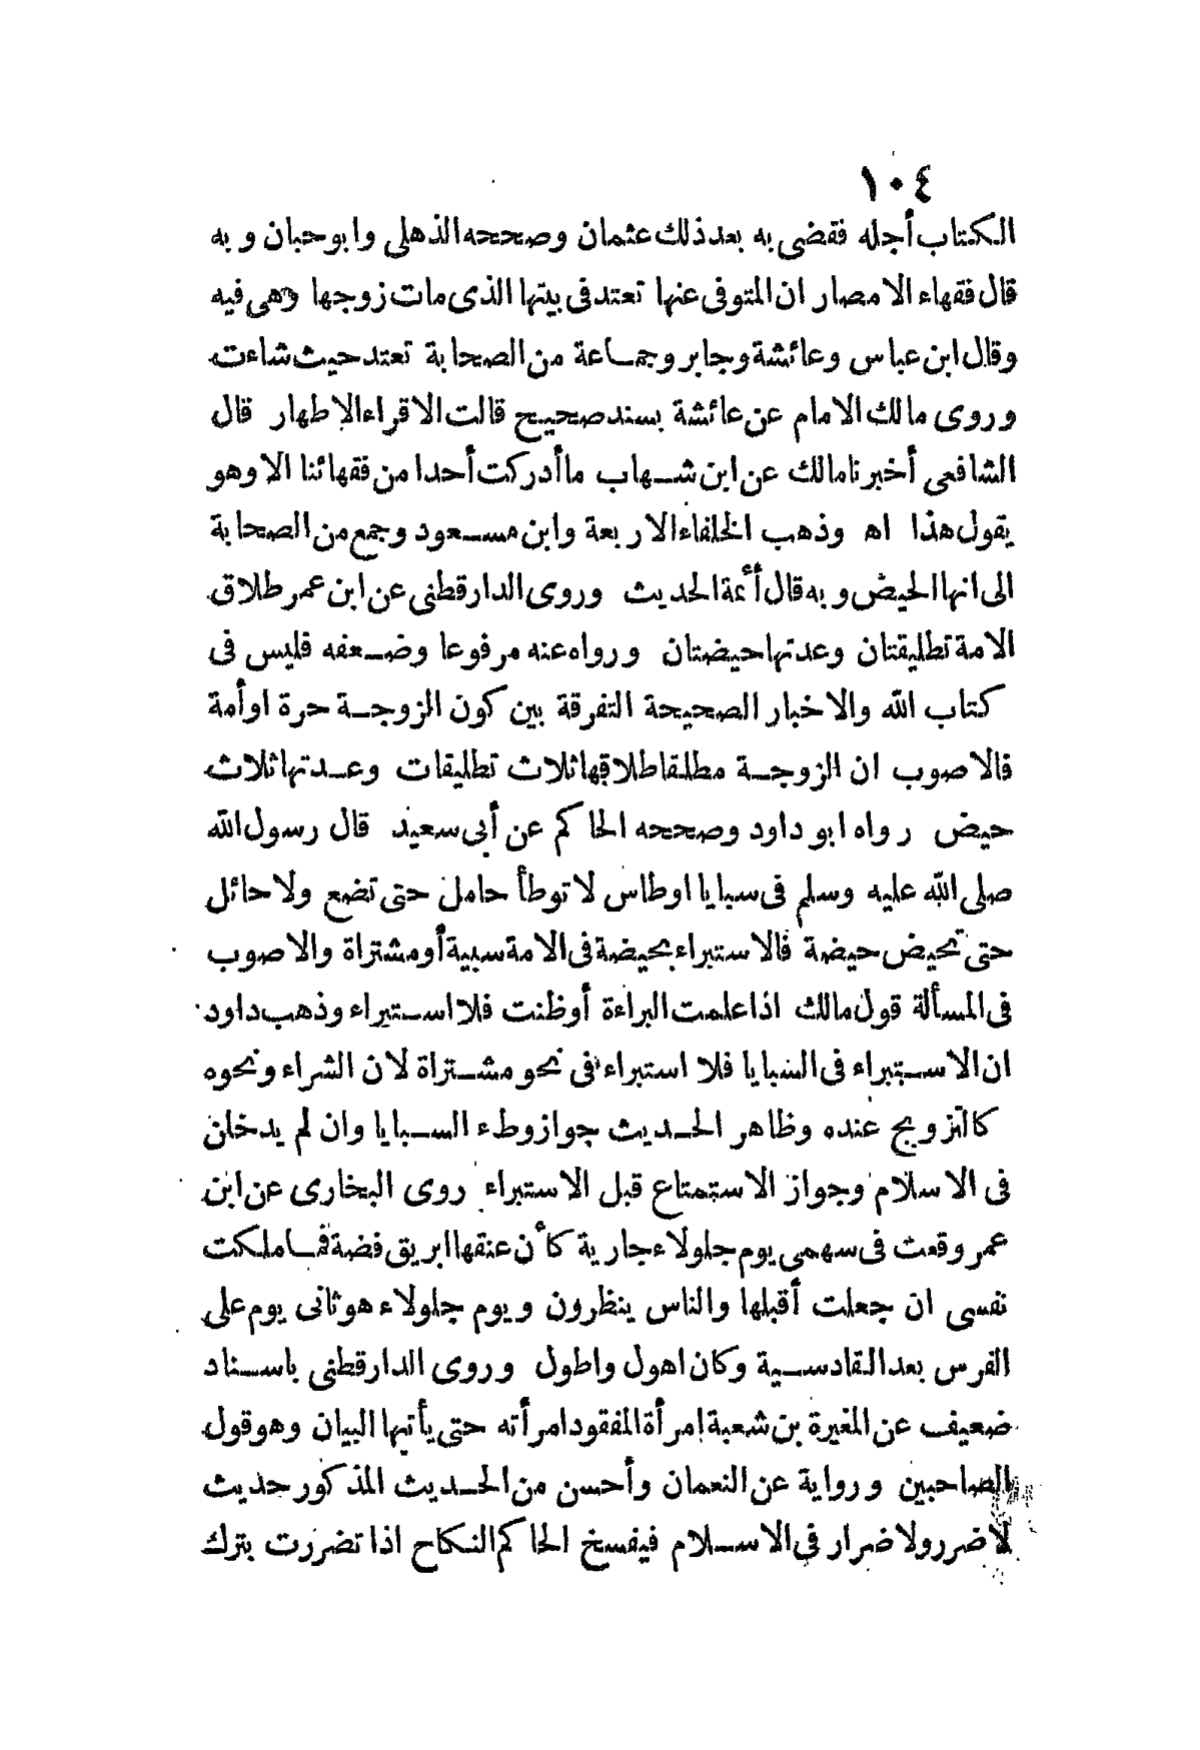 ١٠٤
الكتاب أجله فقضى به بعد ذلك عثمان وصححه الذهلى وابو حبان وبه
قال فقهاء الامصار ان المتوفى عنها تعتد فى بيتها الذى مات زوجها وهى فيه
وقال ابن عباس وعائشة وجابر وجماعة من الصحابة تعتد حيث شاءت
وروى مالك الامام عن عائشة بسند صحيح قالت الاقراء الاطهار قال
الشافعى أخبرنا مالك عن ابن شهاب ما أدركت أحدا من فقهائنا الا وهو
يقول هذا اه وذهب الخلفاء الاربعة وابن مسعود وجمع من الصحابة
الى انها الحيض وبه قال أئمة الحديث وروى الدارقطنى عن ابن عمر طلاق
الامة تطليقتان وعدتها حيضتان ورواه عنه مرفوعا وضعفه فليس فى
كتاب الله والاخبار الصحيحة التفرقة بين كون الزوجة حرة او أمة
فالاصوب ان الزوجة مطلقا طلاقها ثلاث تطليقات وعدتها ثلاث
حيض رواه ابو داود وصححه الحاكم عن أبى سعيد قال رسول الله
صلى الله عليه وسلم فى سبايا اوطاس لا توطأ حامل حتى تضع ولا حائل
حتى تحيض حيضة فالاستبراء بحيضة فى الامة سبية أو مشتراة والاصوب
فى المسألة قول مالك اذا علمت البراءة أو ظنت فلا استبراء وذهب داود
ان الاستبراء فى السبايا فلا استبراء فى نحو مشتراة لان الشراء ونحوه
كالتزويج عنده وظاهر الحديث جواز وطء السبايا وان لم يدخلن
فى الاسلام وجواز الاستمتاع قبل الاستبراء روى البخارى عن ابن
عمر وقعت فى سهمى يوم جلولاء جارية كأن عنقها ابريق فضة فما ملكت
نفسى ان جعلت أقبلها والناس ينظرون ويوم جلولاء هو ثانى يوم على
الفرس بعد القادسية وكان اهول واطول وروى الدارقطنى باسناد
ضعيف عن المغيرة بن شعبة امرأة المفقود امرأته حتى يأتيها البيان وهو قول
الصاحبين ورواية عن النعمان وأحسن من الحديث المذكور حديث
لا ضرر ولا ضرار فى الاسلام فيفسخ الحاكم النكاح اذا تضررت بترك